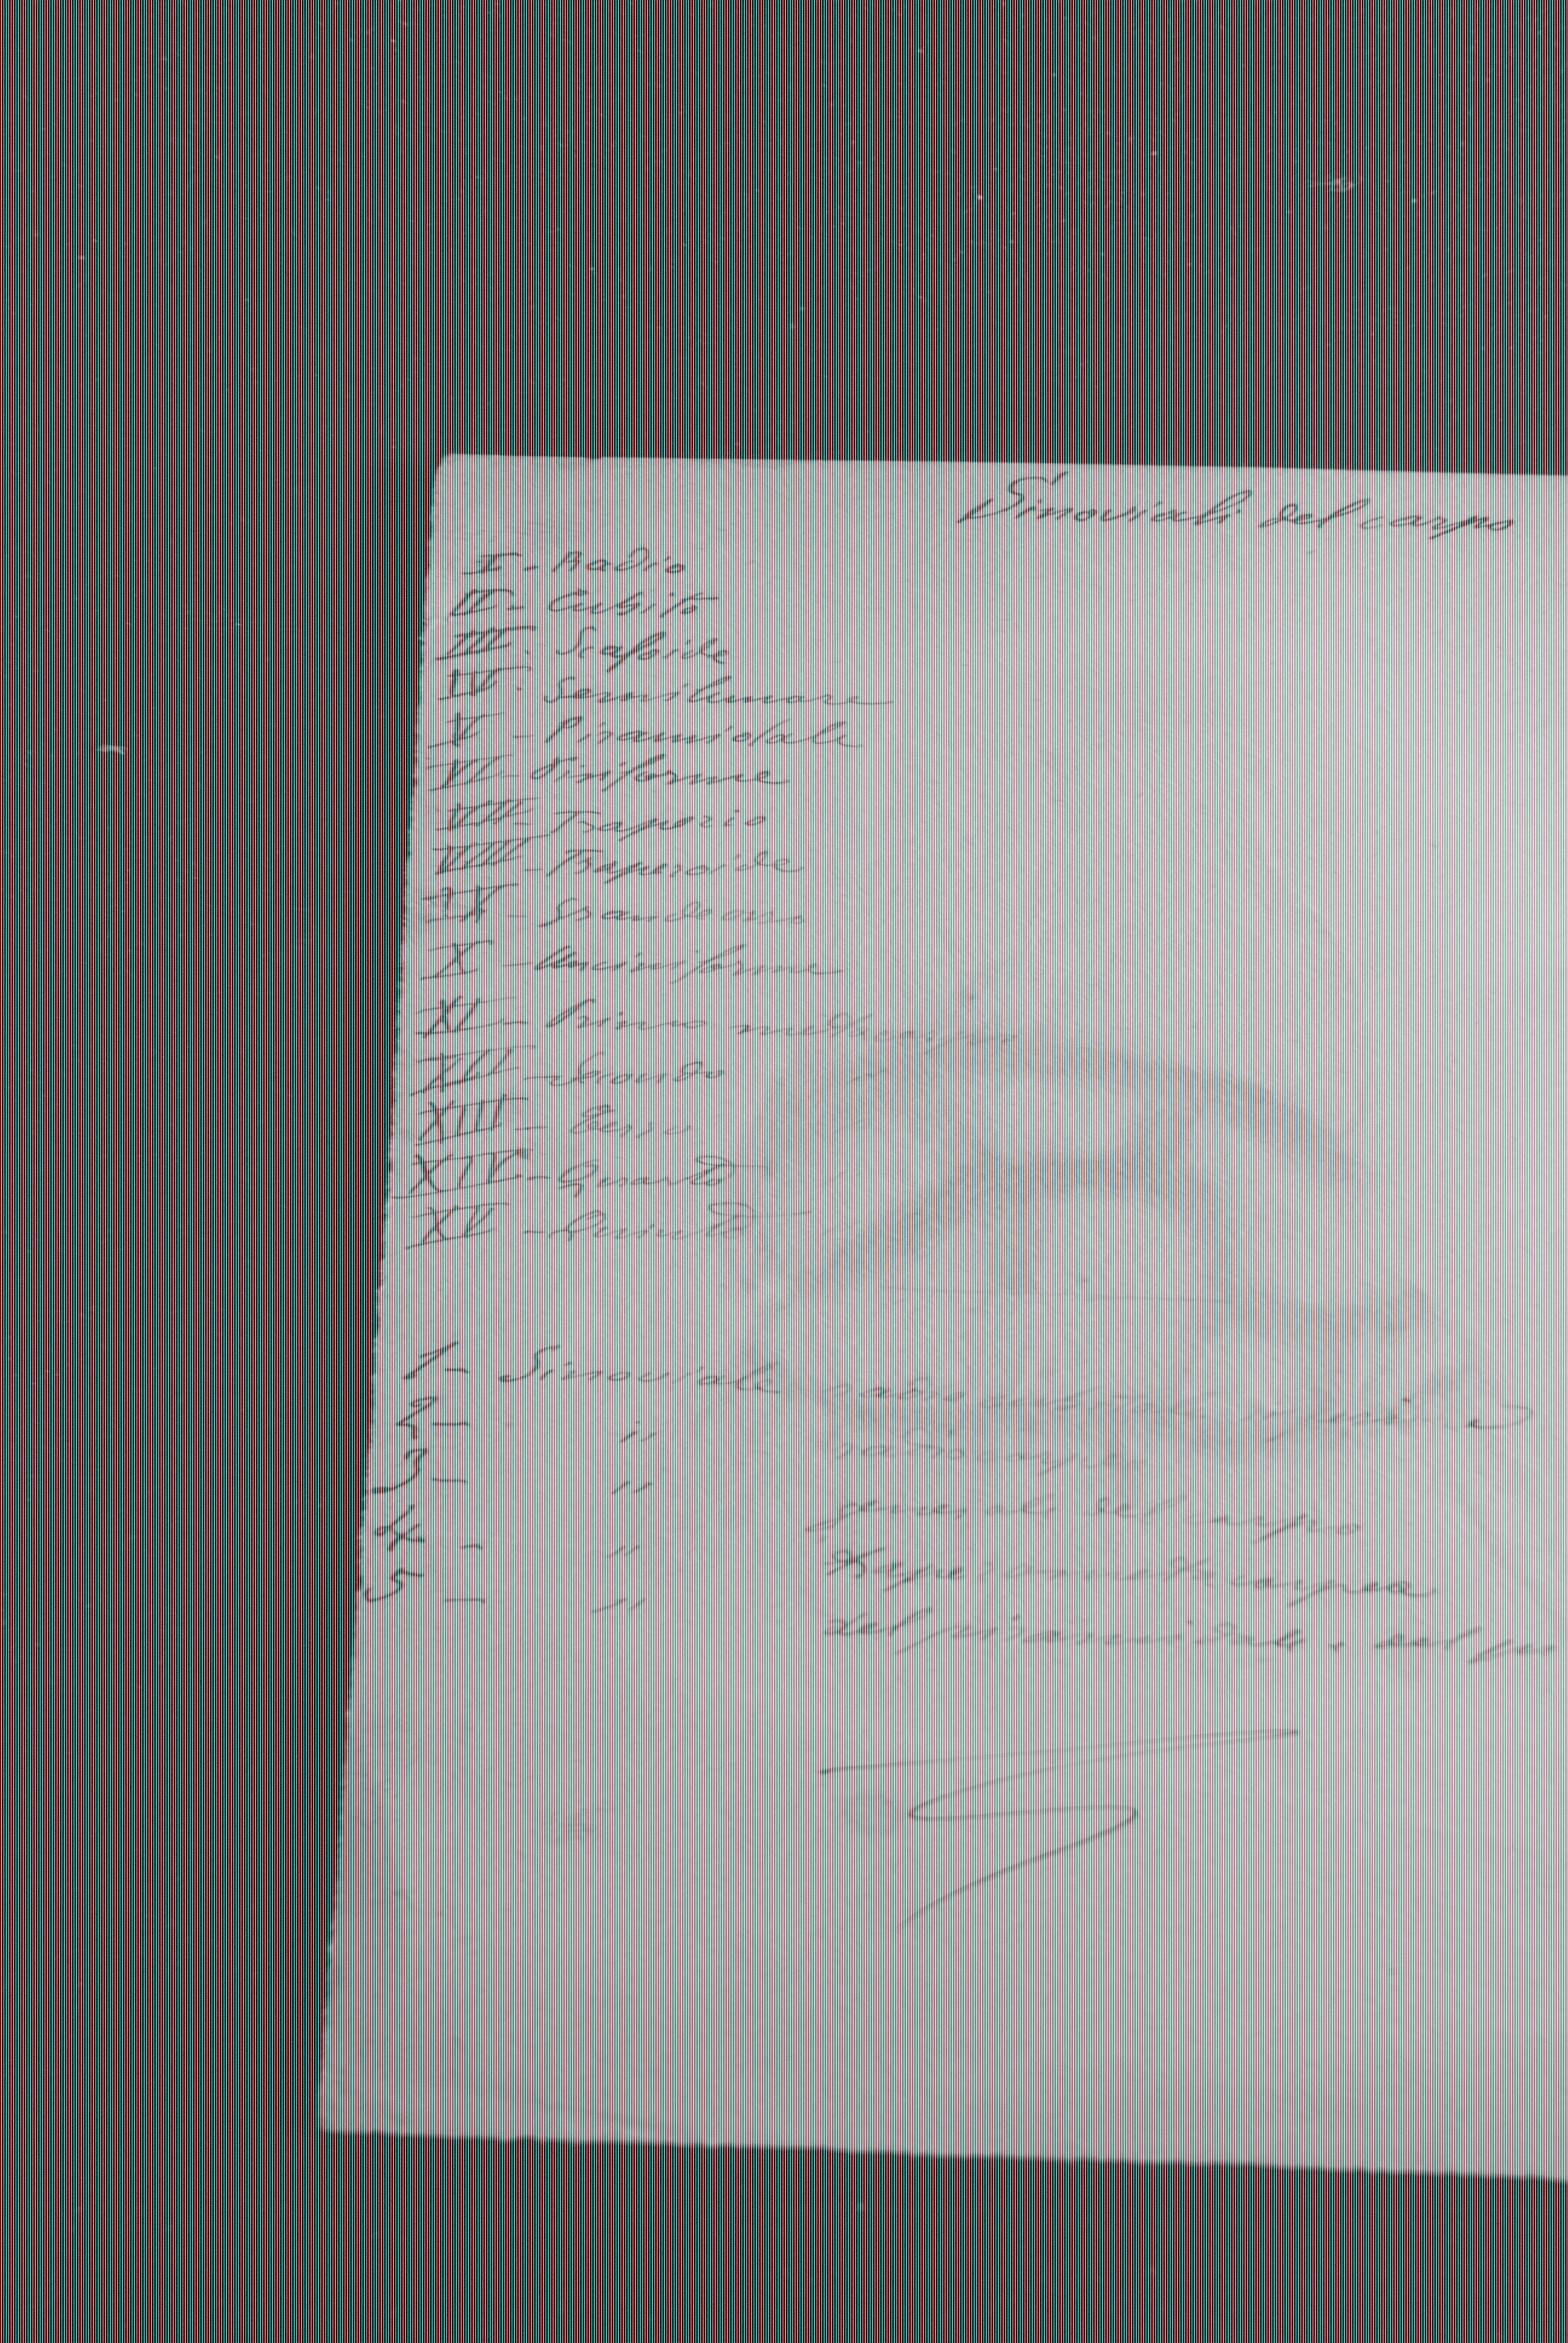 Sinoviali del carpo
I - Radio
II - Cubito
III - Scafoide
IV - Semilunare
V - Piramidale
VI - Pisiforme
VII - Trapezio
VIII - Trapezoide
IX - Grande osso
X - Unciniforme
XI - Primo metacarpo
XII - Secondo
XIII - Terzo
XIV - Quarto
XV - Quinto
1 - Sinoviale radio cubitale inferiore
2 - " radiocarpea
3 - " generale del carpo
4 - " trapezometacarpea
5 - " del piramidale e del